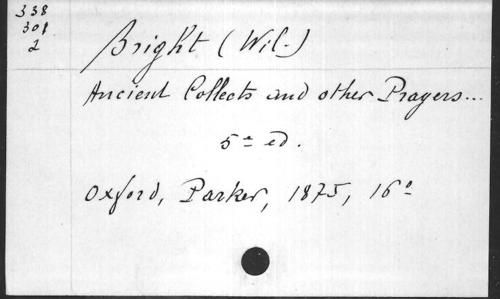 338
301
2
Bright (Wil.)
Ancient Collects and other Prayers...
5ª ed.
Oxford, Parker, 1875, 16º